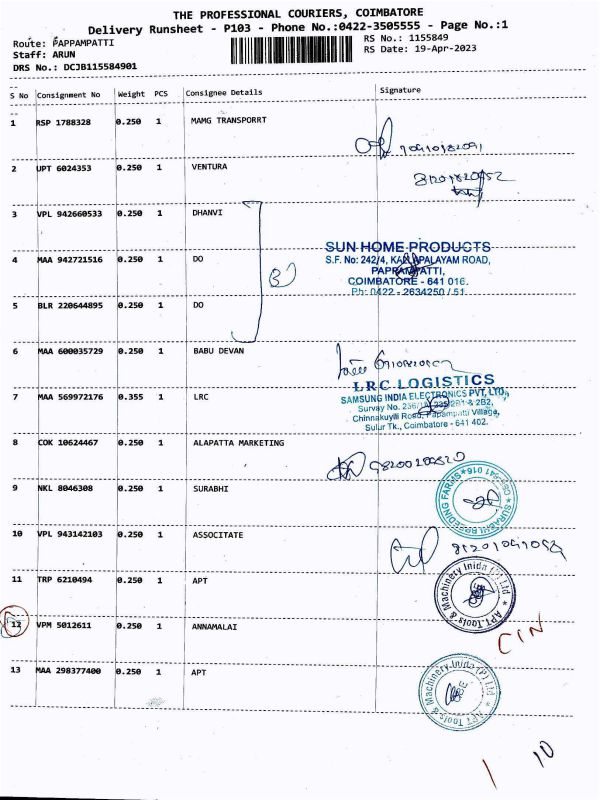 THE PROFESSIONAL COURIERS, COIMBATORE
Delivery Runsheet - P103 - Phone No.:0422-3505555 - Page No.:1
Route: PAPPAMPATTI
Staff: ARUN
DRS No.: DCJB115584901
RS No.: 1155849
RS Date: 19-Apr-2023
S No Consignment No Weight PCS Consignee Details Signature
1 RSP 1788328 0.250 1 MAMG TRANSPORRT
2 UPT 6024353 0.250 1 VENTURA
3 VPL 942660533 0.250 1 DHANVI
SUN HOME PRODUCTS
S.F. No: 242/4, KALLAPALAYAM ROAD,
4 MAA 942721516 0.250 1 DO
PAPPAMPATTI,
COIMBATORE - 641 016.
Ph: 0422 - 2634250 / 51.
5 BLR 220644895 0.250 1 DO
6 MAA 600035729 0.250 1 BABU DEVAN
LRC LOGISTICS
7 MAA 569972176 0.355 1 LRC
SAMSUNG INDIA ELECTRONICS PVT. LTD.,
Survay No. 236/1A, & 2B2,
Chinnakuyili Road, Papampatti Village,
Sulur Tk., Coimbatore - 641 402.
8 COK 10624467 0.250 1 ALAPATTA MARKETING
9 NKL 8046308 0.250 1 SURABHI
SURABHI BREEDING FARMS
CBE-641 016
10 VPL 943142103 0.250 1 ASSOCITATE
11 TRP 6210494 0.250 1 APT
APT Tools & Machinery Inida (P) Ltd
12 VPM 5012611 0.250 1 ANNAMALAI
CIN
13 MAA 298377400 0.250 1 APT
APT Tools & Machinery Inida (P) Ltd
CBE
1 10